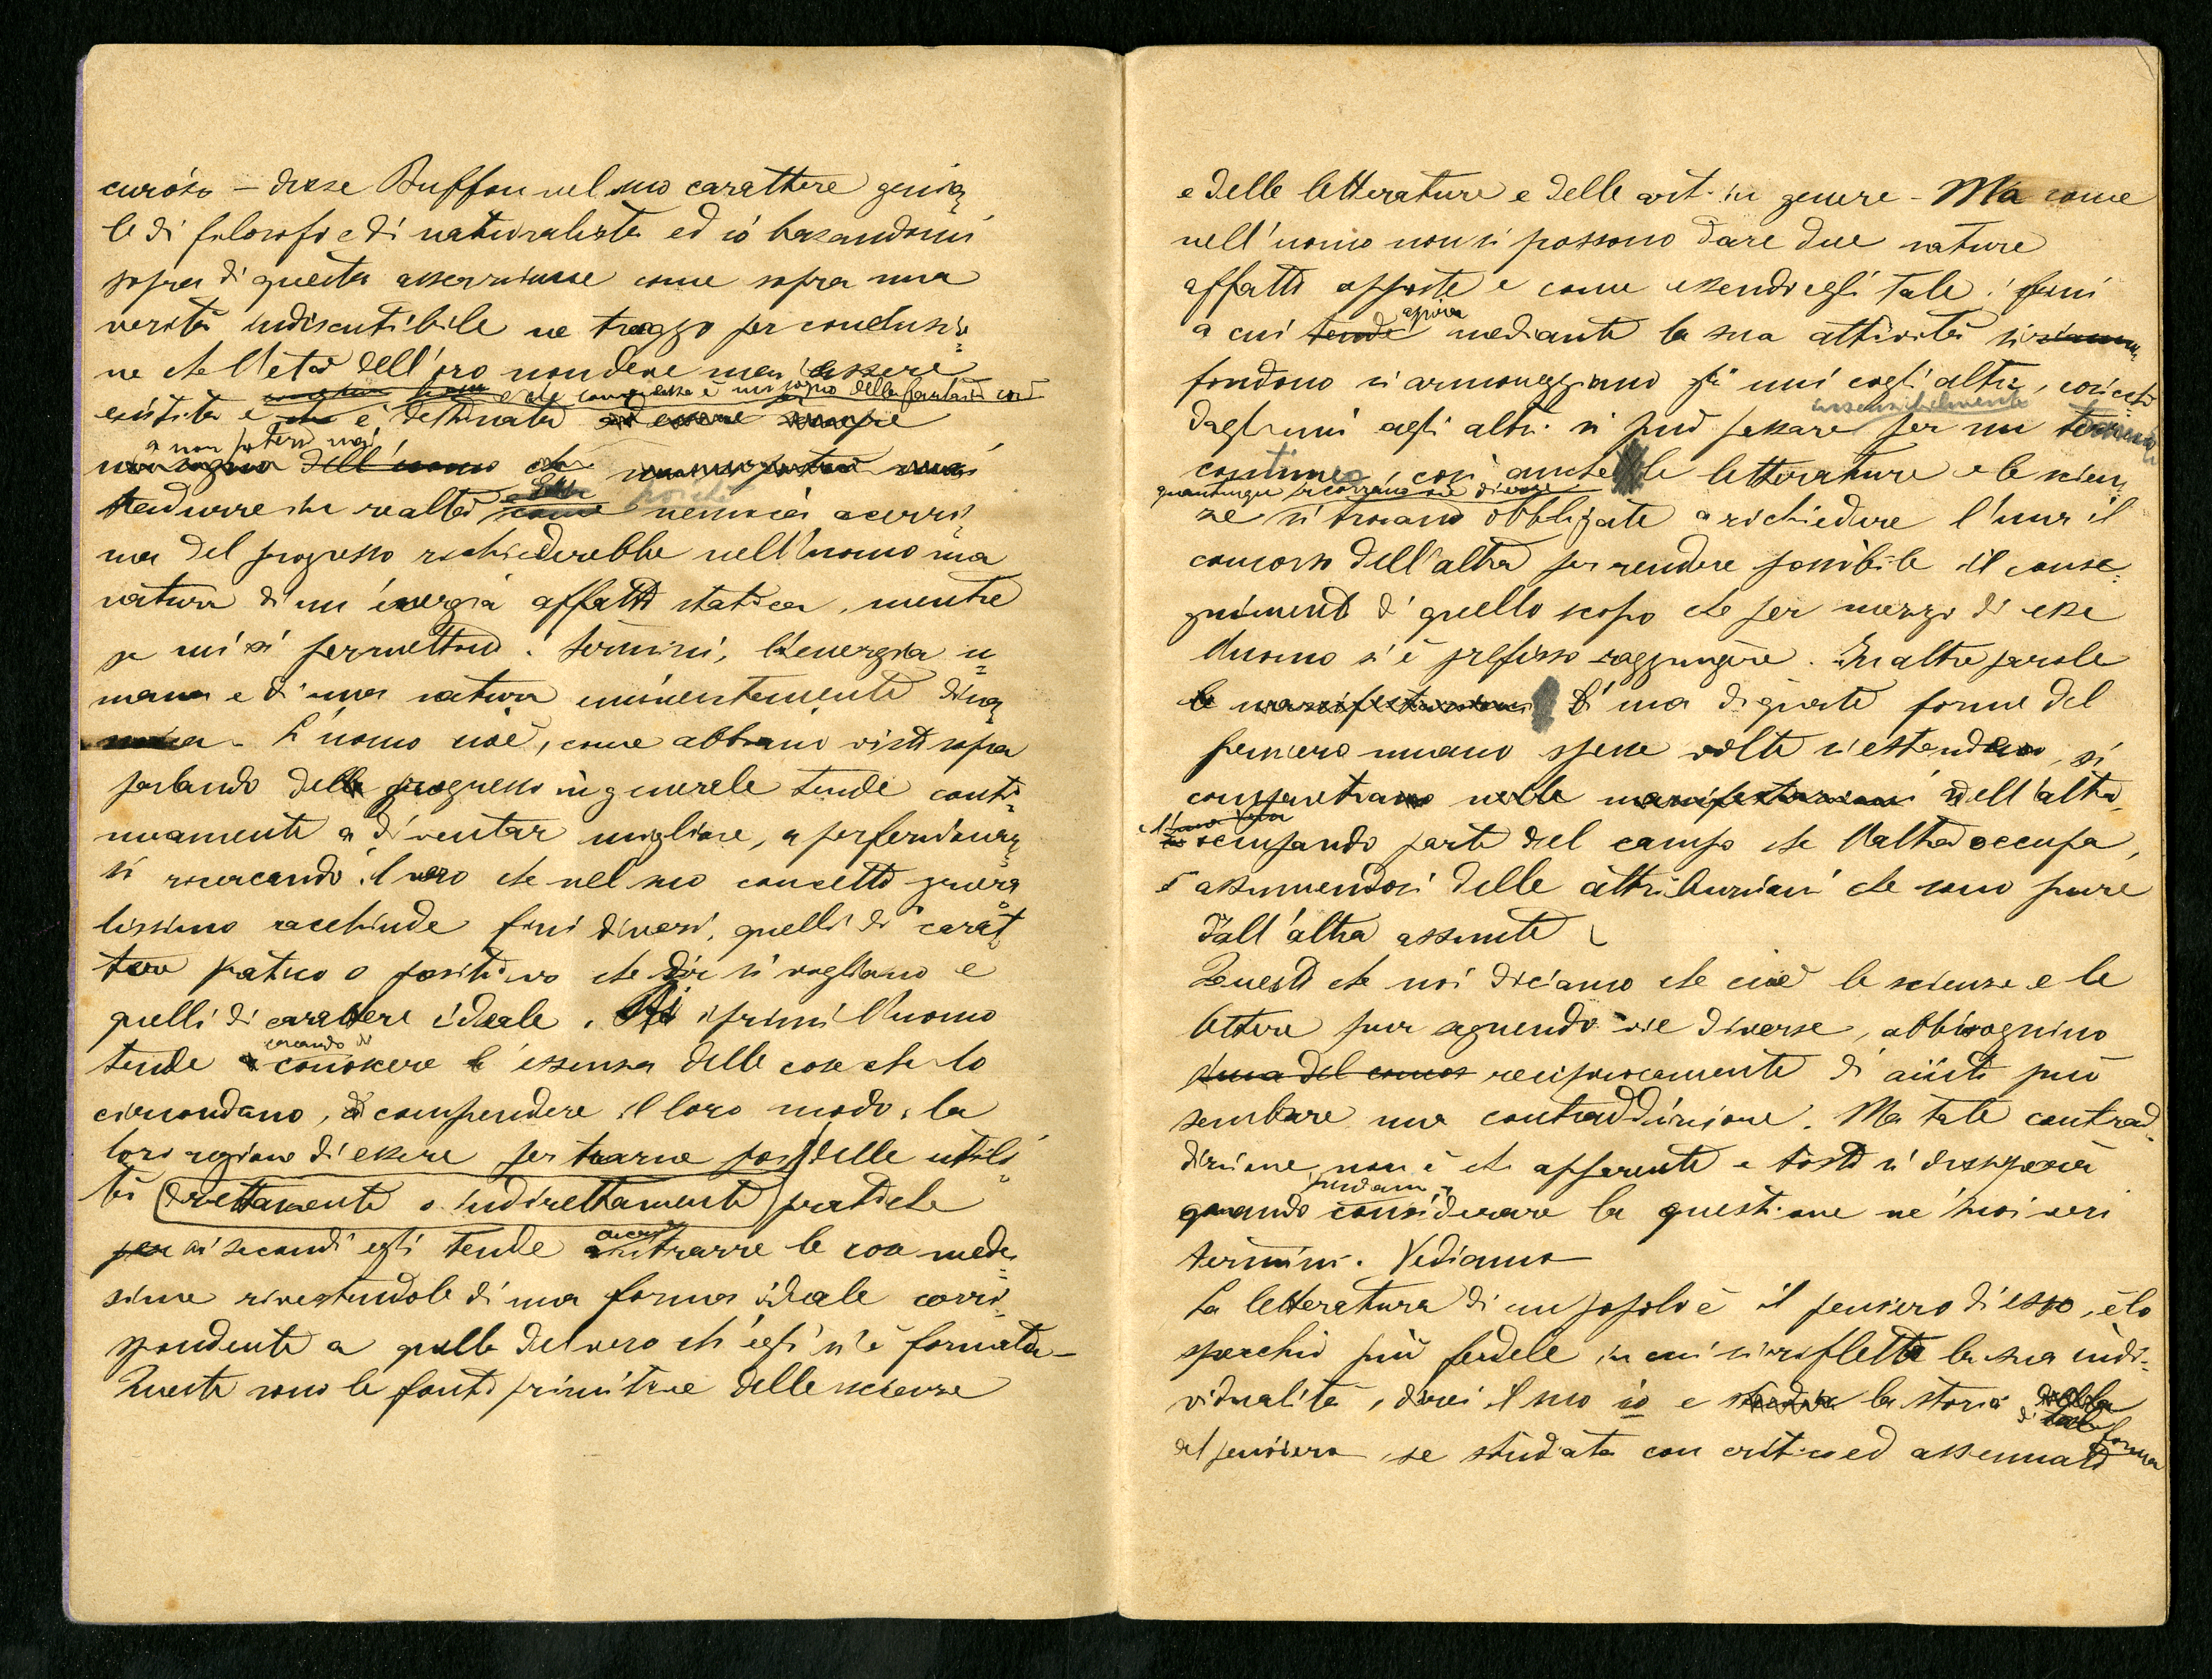 curioso – disse Buffon nel suo carattere genia
le di filosofo e di naturalista ed io basandomi
sopra di questa asserzione come sopra una
verità indiscutibile ne traggo per conclusio
ne che l'età dell'oro non deve mai essere
e che come essa è un sogno della fantasia così
esistita e che è destinata ad essere sempre
a non potersi mai
un sogno dell'uomo che
tradurre in realtà come poichè nemica acerri
ma del progresso richiederebbe nell'uomo una
natura di un'energia affatto statica, mentre
se mi si permettono i termini, l'energia u
mana e di una natura eminentemente dina
mica – L'uomo cioè, come abbiamo visto sopra
parlando del progresso in generale tende conti
nuamente a diventar migliore, a perfezionar
si ricercando il vero che nel suo concetto genera
lissimo racchiude fini diversi, quelli di carat
tere pratico o positivo che dir si vogliano e
quelli di carattere ideale. Ai primi l'uomo
cercando di
tende a conoscere l'essenza delle cose che lo
circondano, di comprendere il loro modo, la
loro ragione di essere per trarne poi delle utili
tà (direttamente o indirettamente) pratiche
per ai secondi egli tende a ritrarre le cose mede
sime rivestendole di una forma ideale corri
spondente a quella del vero ch'egli s'è formata –
Queste sono le fonti primitive delle scienze
e delle letterature e delle arti in genere – Ma come
nell'uomo non si possono dare due nature
affatto opposte e come essendo egli tale i fini
aspira
a cui tende mediante la sua attività si
fondono si armonizzano gli uni cogli altri, cosicchè
insensibilmente
dagli uni agli altri si può passare per un
continuo, così anche le letterature e le scien
quantunque percorrano vie diverse
ze si trovano obbligate a richiedere l'una il
concorso dell'altra per rendere possibile il conse
guimento di quello scopo che per mezzo di esse
l'uomo s'è prefisso raggiungere. In altre parole
le manifestazioni di una di queste forme del
pensiero umano spesse volte si estendono, si
compenetrano nelle manifestazioni dell'altra
occupando parte del campo che l'altra occupa,
e assumendosi delle attribuzioni che sono pure
dall'altra assunte
Questo che noi diciamo che cioè le scienze e le
lettere pur seguendo vie diverse, abbisognino
l'una del concor reciprocamente di aiuti può
sembrare una contraddizione. Ma tale contrad
dizione non è che apparente e tosto si
quando considerare la questione ne' suoi veri
termini. Vediamo
La letteratura di un popolo è il pensiero di esso, è lo
specchio più fedele in cui si riflette la sua indi
vidualità, direi il suo io e la storia della
di tale forma
del pensiero, se studiata con critica ed assennato